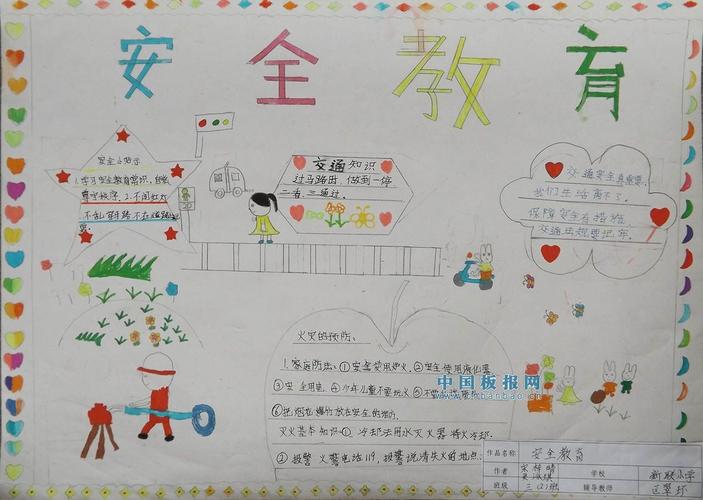 安全教育
安全小贴士
1.学习安全教育常识，自觉
遵守秩序。2.不闯红灯
不乱穿马路 不在道路
交通知识
过马路田，做到一停
二看，三通过。
交通安全真重要，
我们生活离不了。
保障安全有措施
交通法规要记牢。
火灾的预防。
1.家庭防法：①安全使用炉火。②安全使用液化
③安全用电 ④少年儿童不要玩火 ⑤不
⑥把烟花爆竹放在安全的地方。
灭火基本知识：①冷却法用水灭火器将火冷却。
②报警 火警电话119，报警说清失火的地点。
中国板报网
作品名称 安全教育
作者 学校 新联小学
班级 三(2)班 辅导教师